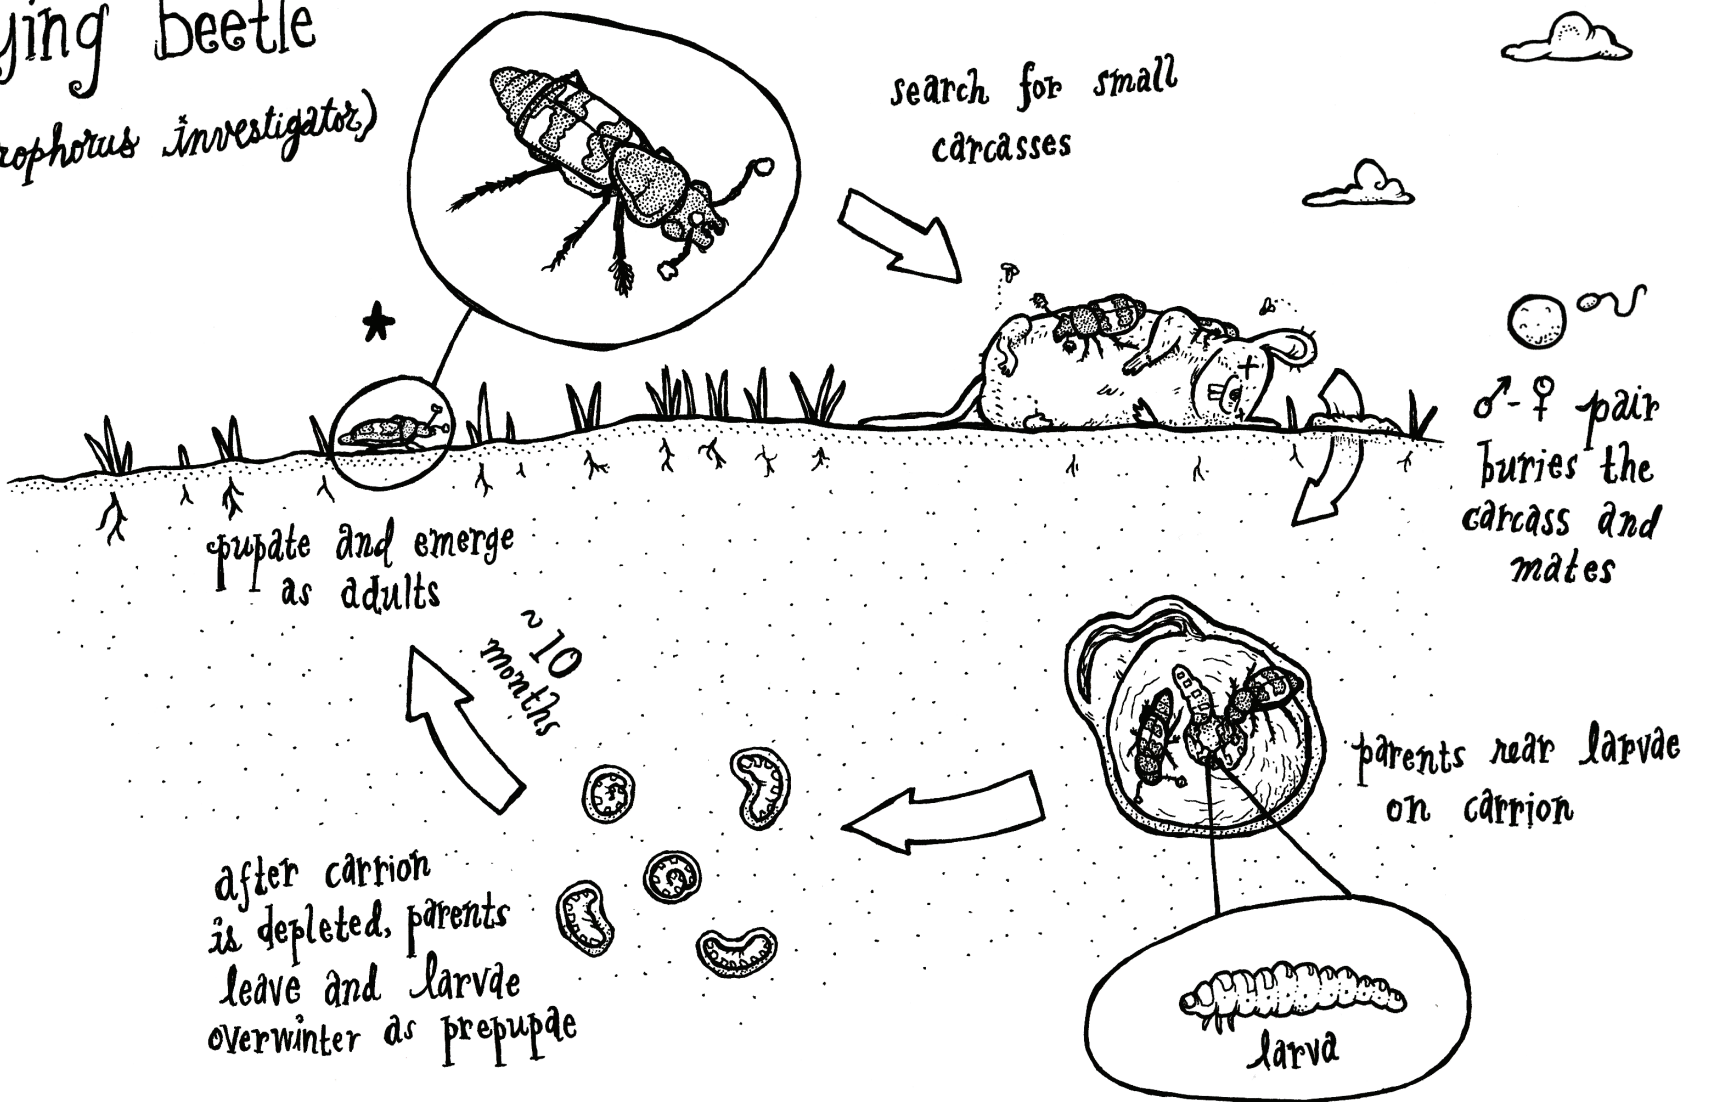 ying beetle
rophorus investigator)
search for small
carcasses
♂-♀ pair
buries the
carcass and
mates
parents rear larvae
on carrion
larva
after carrion
is depleted, parents
leave and larvae
overwinter as prepupae
~10
months
pupate and emerge
as adults